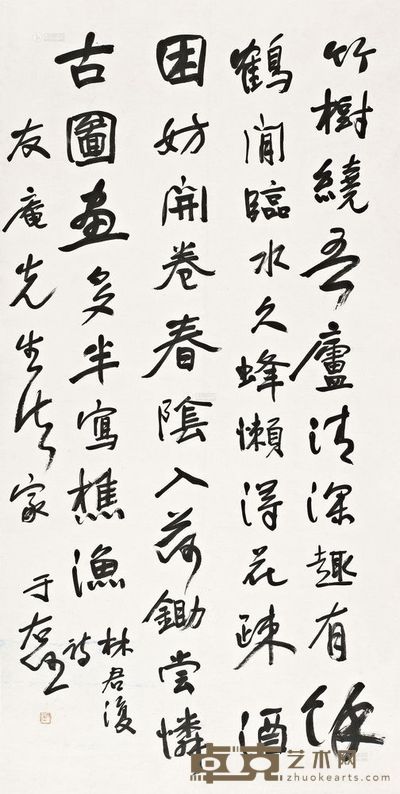 竹樹繞吾廬清深趣有餘
鶴閒臨水久蜂懶得花疎酒
困妨開卷春陰入荷鋤嘗憐
古圖畫多半寫樵漁
林君復
詩
友庵先生法家
于右任
卓克艺术网
zhuokearts.com